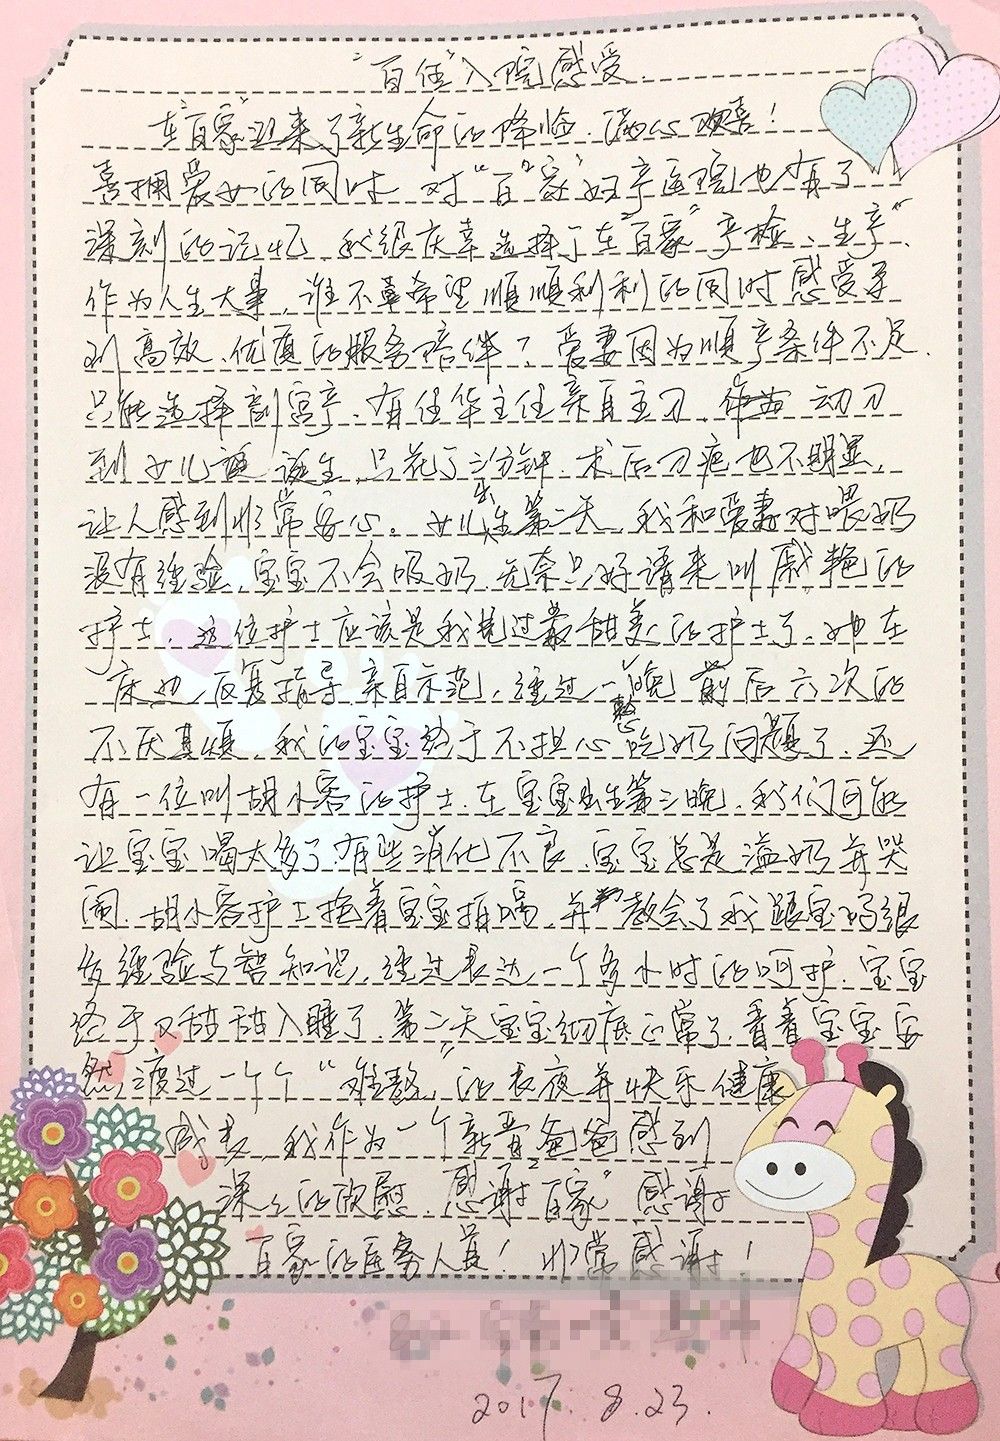 "百佳"入院感受.
在"百家"迎来了新生命的降临.满心欢喜!
喜拥爱女的同时 对"百"家"妇产医院也有了
深刻的记忆.我很庆幸选择了在"百家"产检、生产"
作为人生大事,谁不希望顺顺利利的同时感受
到高效、优质的服务 爱妻因为顺产条件不足.
只能选择剖宫产.有任华主任亲自主刀. 动刀
到女儿诞生,只花了三分钟.术后刀疤也不明显,
让人感到非常安心。女儿出生第二天,我和爱妻对喂奶
没有经验,宝宝不会吸奶.无奈只好请来叫戚艳的
护士,这位护士应该是我见过最甜美的护士了.她在
床边,反复指导亲自示范,经过一晚前后六次的
不厌其烦,我的宝宝终于不担心吃奶问题了.还
有一位叫胡小容的护士.在宝宝出生第三晚,我们可能
让宝宝喝太多了.有些消化不良.宝宝总是溢奶并哭
闹.胡小容护士抱着宝宝拍嗝,并教会了我跟宝妈很
多经验与知识,经过长达一个多小时的呵护.宝宝
终于又甜甜入睡了.第二天宝宝彻底正常了.看着宝宝安
然渡过一个个"难熬"的长夜并快乐健康
成长,我作为一个新晋爸爸感到
深深的欣慰.感谢"百家" 感谢
百家的医务人员!非常感谢!
2017.8.23.